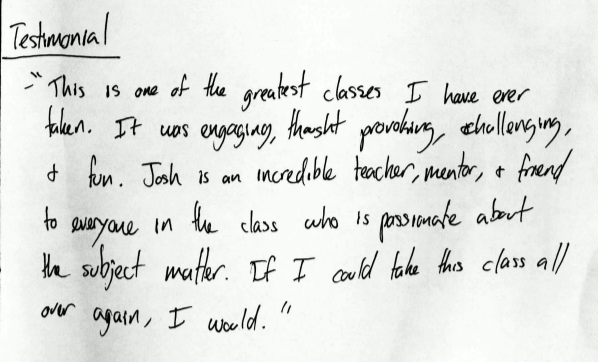 Testimonial
- "This is one of the greatest classes I have ever
taken. It was engaging, thought provoking, challenging,
& fun. Josh is an incredible teacher, mentor, & friend
to everyone in the class who is passionate about
the subject matter. If I could take this class all
over again, I would."